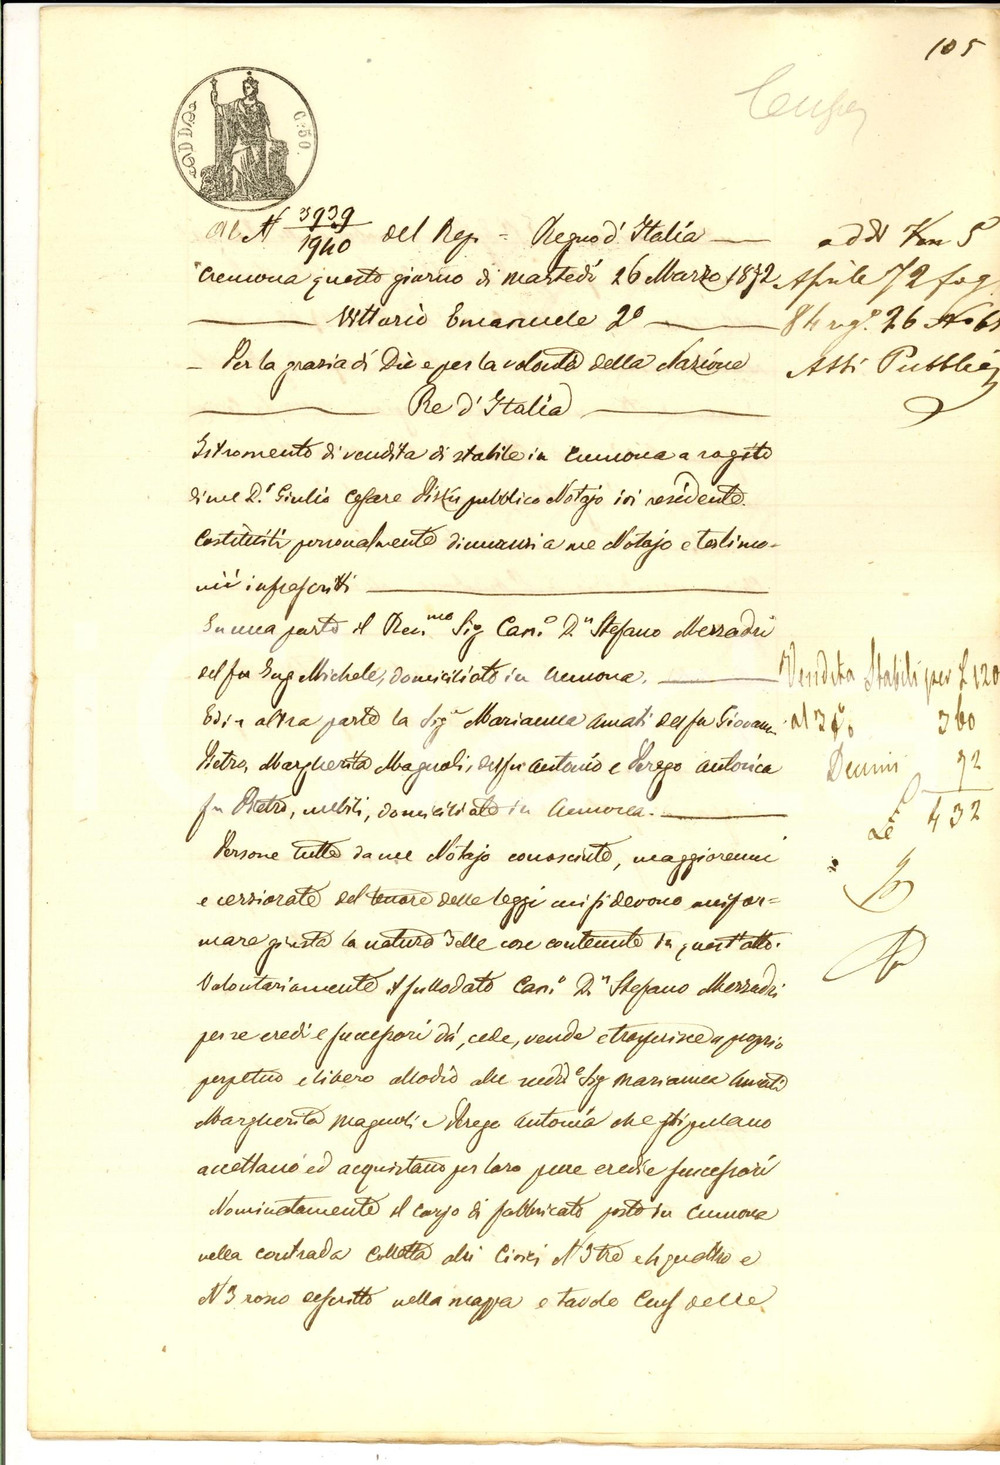 105
C. 50.
Al N 3939/1940 del Rep = Regno d'Italia
Cremona questo giorno di martedì 26 Marzo 1872
Vittorio Emanuele 2º
Per la grazia di Dio e per la volontà della Nazione
Re d'Italia
Istromento di vendita di stabile in Cremona a rogito
di me D.r Giulio Cesare pubblico Notajo ivi residente.
Costituiti personalmente dinnanzi a me Notajo e testimo-
nii infrascritti
In una parte il Rev.mo Sig Can.o D.n Stefano Mezzadri
del fu Ing Michele, domiciliato in Cremona.
Ed in altra parte la Sig.a Marianna Amati del fu Giovanni
Pietro, Margherita Magnoli, del fu Antonio e Perego Antonia
fu Pietro, nubili, domiciliate in Cremona.
Persone tutte da me Notajo conosciute, maggiorenni
e cerziorate del tenore delle leggi cui si devono unifor=
mare giusta la natura delle cose contenute in quest'atto.
Volontariamente il sullodato Can.o D.n Stefano Mezzadri
per se eredi e successori dà, cede, vende e trasferisce a proprio
perpetuo e libero allodio alle sudd.e Sig Marianna Amati
Margherita Magnoli e Perego Antonia che stipulano
accettano ed acquistano per loro pure eredi e successori
Nominatamente il corpo di fabbricato posto in Cremona
nella contrada Colletta alli Civici N 3 tre e 4 quattro e
N 3 rosso descritto nella mappa e tavole Cens delle
Aprile 72 fog
84 reg.o 26
Atti Pubblici
Vendita Stabili per £ 120
al 3 % 360
Decimi 72
£ 432